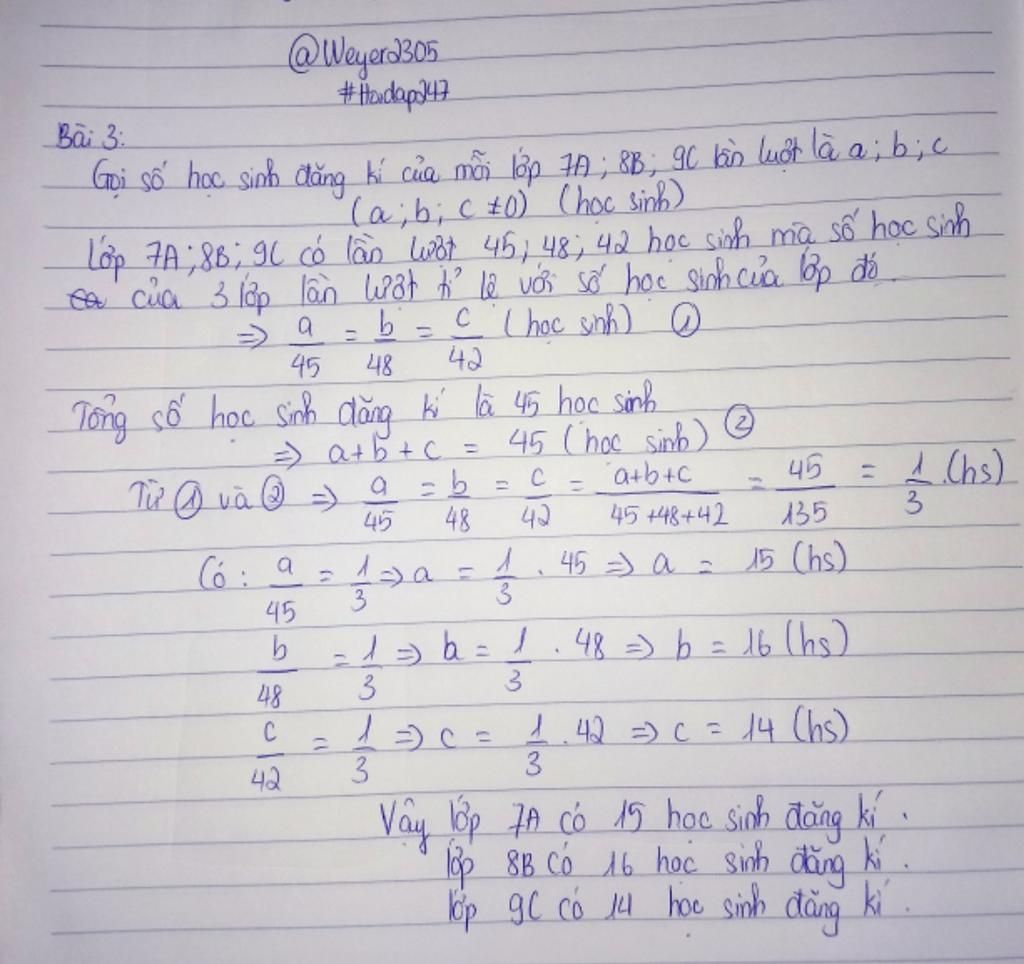 @Weyer2305
#Hoidap247
Bài 3:
Gọi số học sinh đăng kí của mỗi lớp 7A; 8B; 9C lần lượt là a; b; c
(a; b; c ≠0) (học sinh)
Lớp 7A; 8B; 9C có lần lượt 45; 48; 42 học sinh mà số học sinh
của 3 lớp lần lượt tỉ lệ với số học sinh của lớp đó
=> a/45 = b/48 = c/42 (học sinh) ①
Tổng số học sinh đăng kí là 45 học sinh
=> a+b+c = 45 (học sinh) ②
Từ ① và ② => a/45 = b/48 = c/42 = a+b+c/45+48+42 = 45/135 = 1/3 . (hs)
Có: a/45 = 1/3 => a = 1/3 . 45 => a = 15 (hs)
b/48 = 1/3 => b = 1/3 . 48 => b = 16 (hs)
c/42 = 1/3 => c = 1/3 . 42 => c = 14 (hs)
Vậy lớp 7A có 15 học sinh đăng kí.
lớp 8B có 16 học sinh đăng kí.
lớp 9C có 14 học sinh đăng kí.